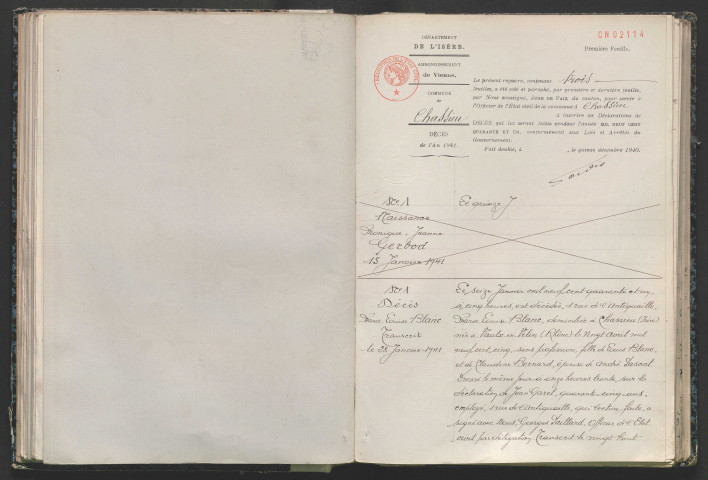 DÉPARTEMENT
DE L'ISÈRE.
ARRONDISSEMENT
de Vienne.
COMMUNE
de
Chassieu
DÉCÈS
de l'An 1941.
CN02114
Première Feuille.
Le présent registre, contenant trois
feuillets, a été coté et paraphé, par première et dernière feuille,
par Nous soussigné, JUGE DE PAIX du canton, pour servir à
l'Officier de l'Etat civil de la commune d Chassieu
à inscrire les Déclarations de
DÉCÈS, qui lui seront faites pendant l'année MIL NEUF CENT
QUARANTE ET UN, conformément aux Lois et Arrêtés du
Gouvernement.
Fait double, à , le quinze décembre 1940.
No 1
Naissance
Monique Jeanne
Gerbod
15 Janvier 1941
Le quinze J
No 1
Décès
Blanc
Transcrit
le 28 Janvier 1941
Le seize Janvier mil neuf cent quarante et un
à cinq heures, est décédée, 1 rue de l'Antiquaille,
Blanc, domiciliée à Chassieu (Isère)
née à Vaulx en Velin (Rhône) le vingt avril mil
neuf cent cinq, sans profession, fille de Louis Blanc,
et de Claudine Bernard, épouse de André
Dressé le même jour à onze heures trente, sur la
déclaration de Jean Garel, quarante cinq ans,
employé, 1 rue de l'Antiquaille, qui lecture faite, a
signé avec Nous, Georges Officier de l'Etat
civil par délégation. Transcrit le vingt huit